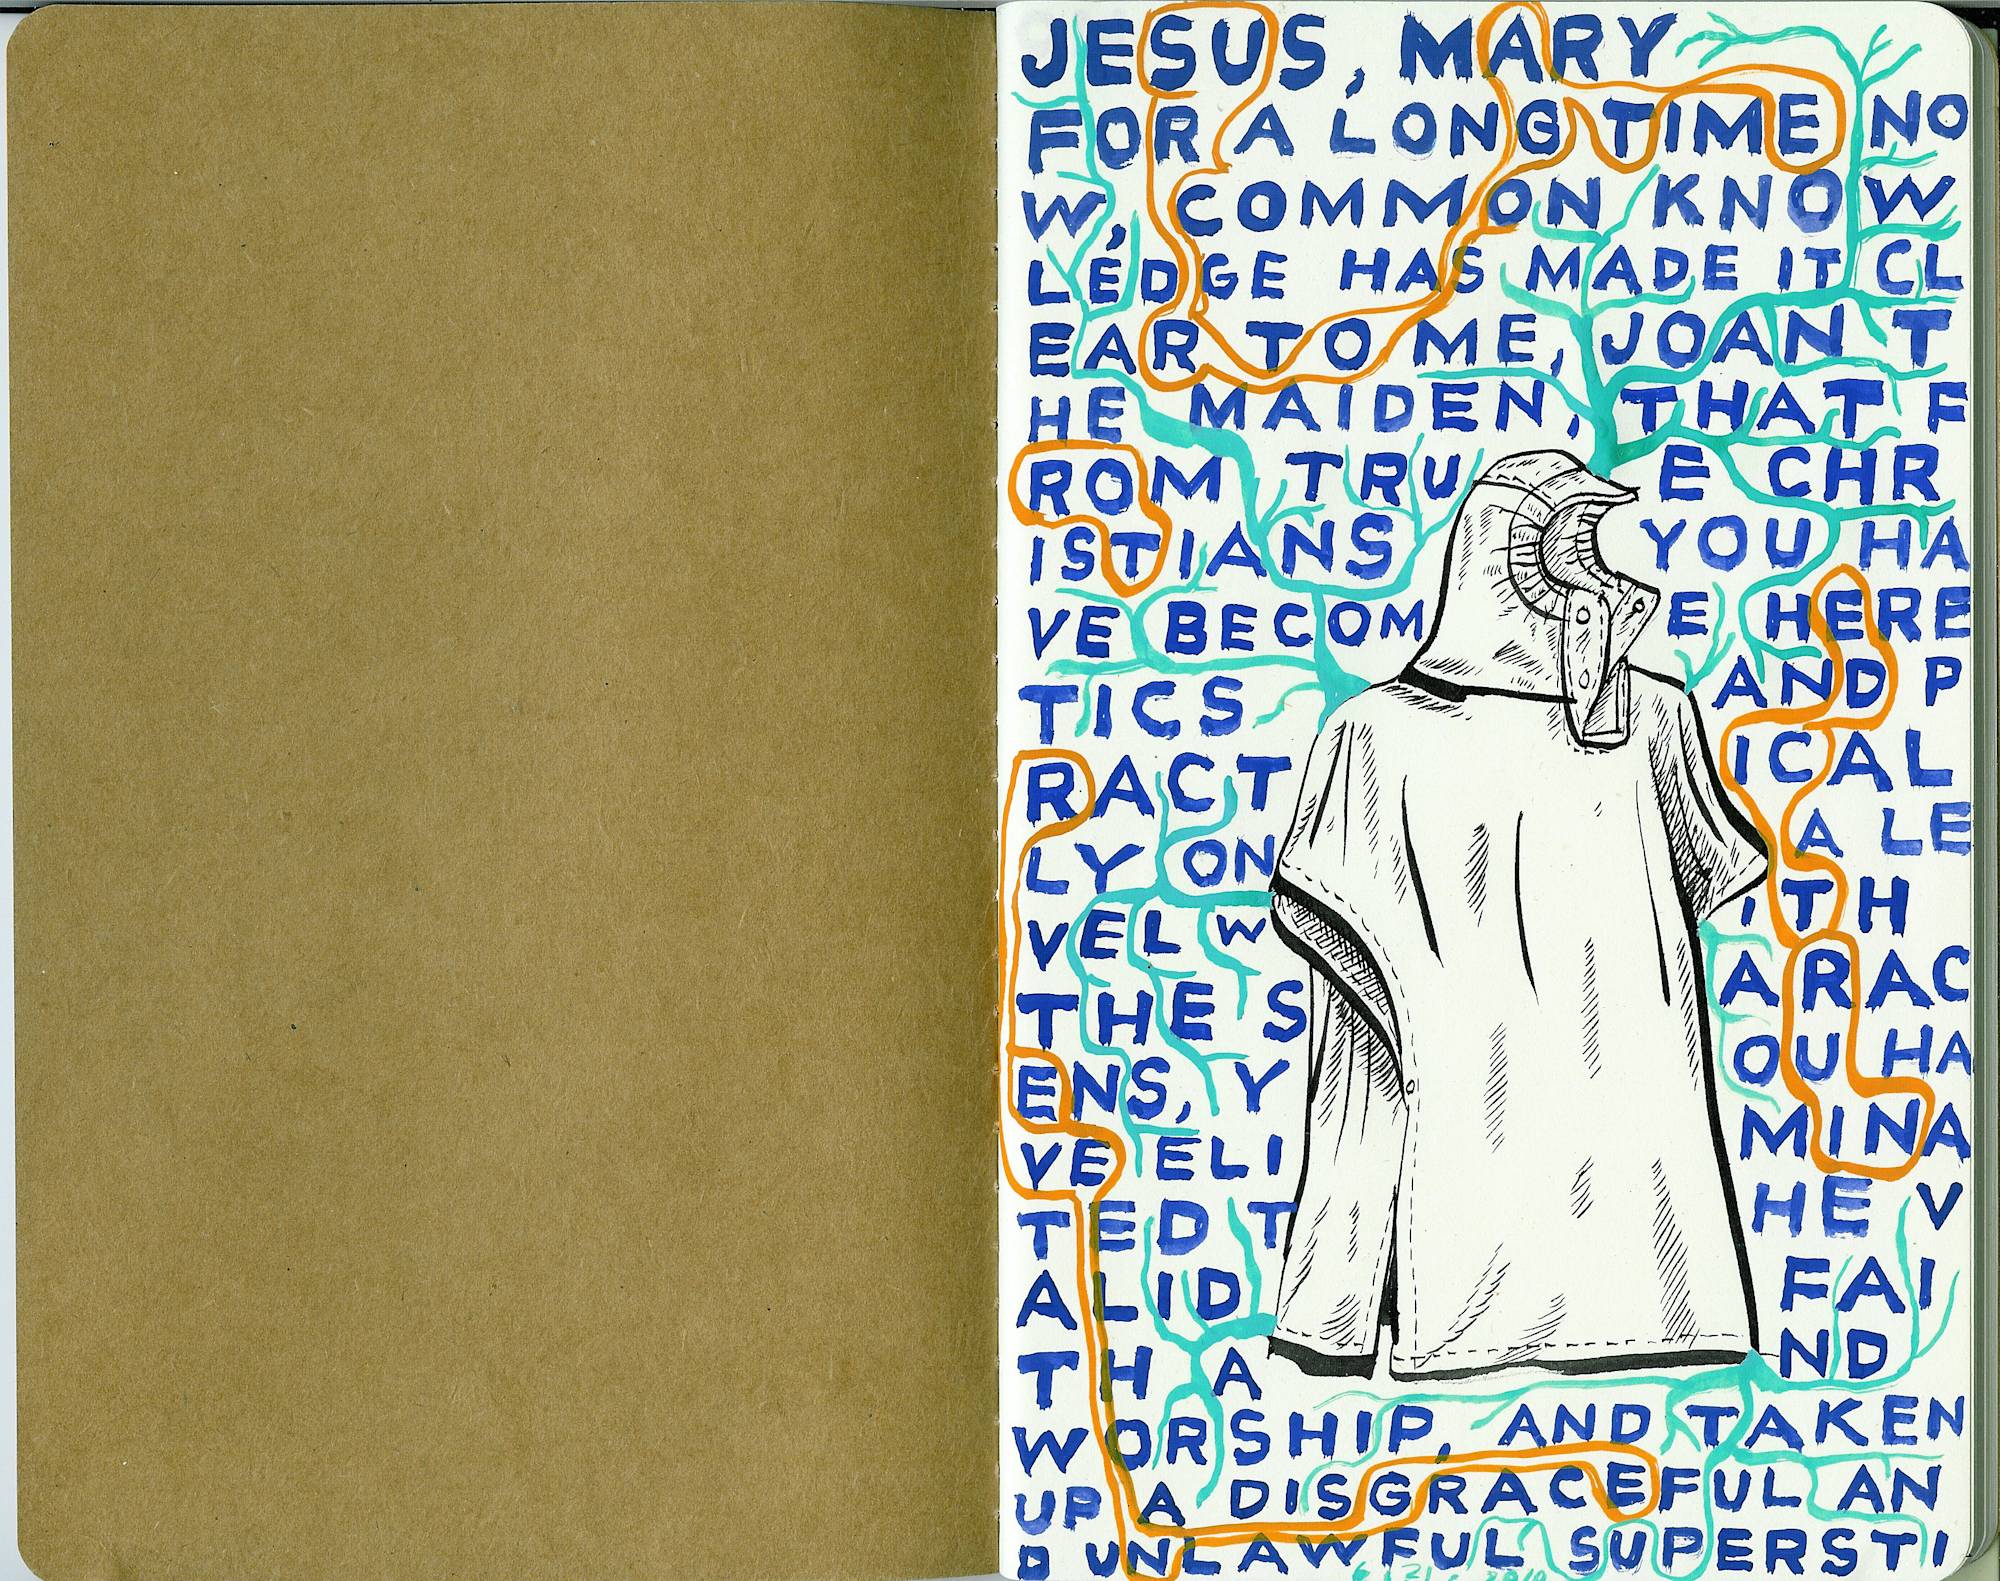 JESUS, MARY
FOR A LONG TIME NO
W, COMMON KNOW
LEDGE HAS MADE IT CL
EAR TO ME, JOAN T
HE MAIDEN, THAT F
ROM TRU E CHR
ISTIANS YOU HA
VE BECOM E HERE
TICS AND P
RACT ICAL
LY ON A LE
VEL W ITH
THE S ARAC
ENS, Y OU HA
VE ELI MINA
TED T HE V
ALID FAI
TH A ND
WORSHIP, AND TAKEN
UP A DISGRACEFUL AN
D UNLAWFUL SUPERSTI